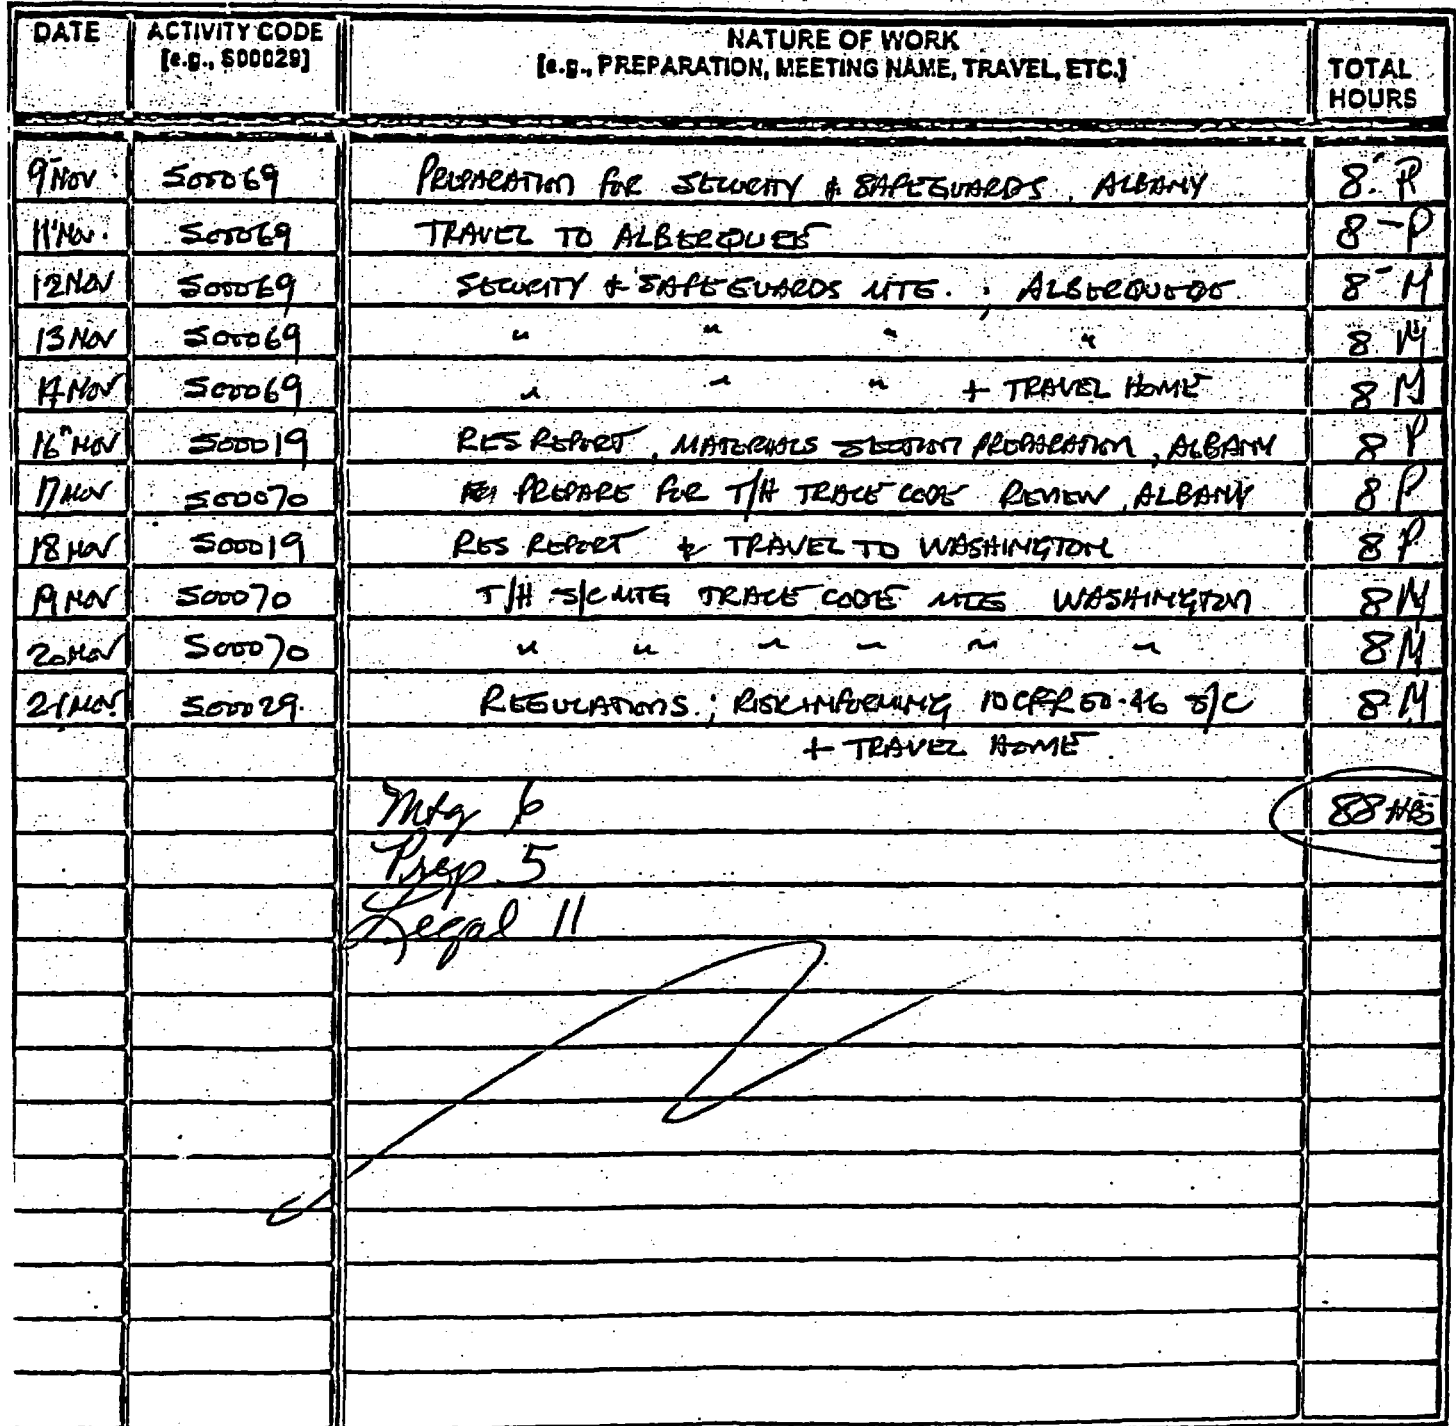 DATE ACTIVITY CODE NATURE OF WORK TOTAL
[e.g., S00029] [e.g., PREPARATION, MEETING NAME, TRAVEL, ETC.] HOURS
9 Nov S00069 PREPARATION FOR SECURITY & SAFEGUARDS, ALBANY 8 P
11 Nov. S00069 TRAVEL TO ALBERQUEE 8 - P
12 Nov S00069 SECURITY & SAFEGUARDS MTG. ; ALBERQUEQUE 8 M
13 Nov S00069 " " " " 8 M
14 Nov S00069 " " " + TRAVEL HOME 8 M
16 Nov S00019 RES REPORT, MATERIALS SECTION PREPARATION, ALBANY 8 P
17 Nov S00070 PREPARE FOR T/H TRACE CODE REVIEW, ALBANY 8 P
18 Nov S00019 RES REPORT & TRAVEL TO WASHINGTON 8 P
19 Nov S00070 T/H S/C MTG TRACE CODE MTG WASHINGTON 8 M
20 Nov S00070 " " " " " " 8 M
21 Nov. S00029. REGULATIONS.; RISK INFORMING 10CFR 50.46 S/C 8 M
+ TRAVEL HOME.
Mtg 6 88 HRS
Prep. 5
Legal 11